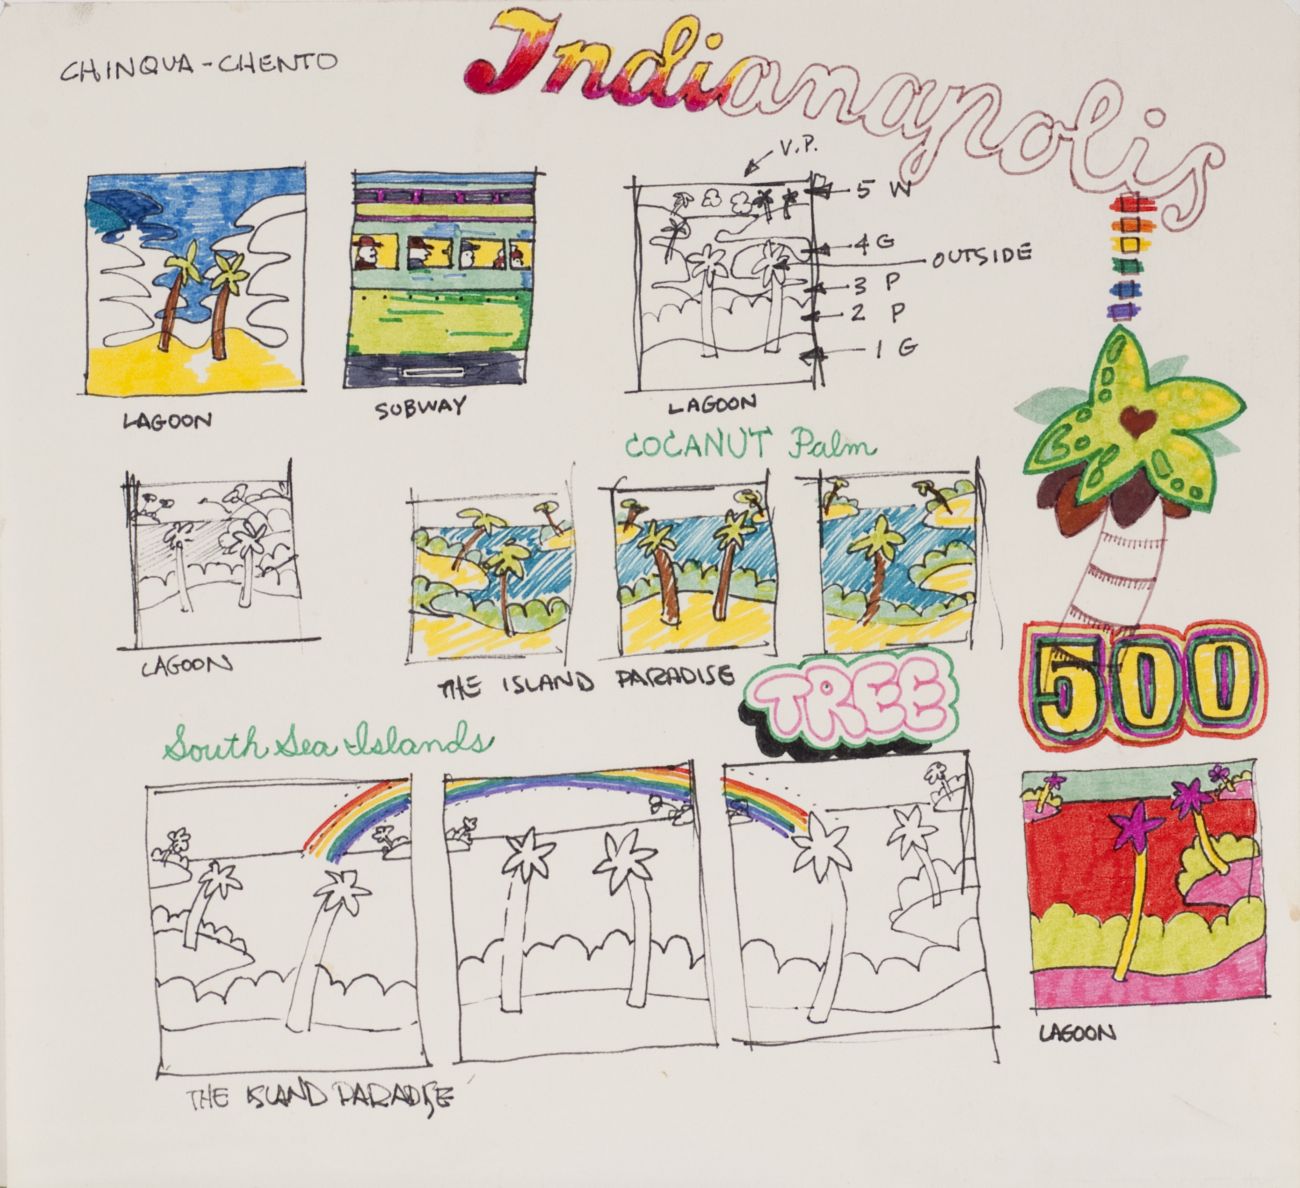 CHINQUA-CHENTO
Indianapolis
V.P.
5 W
4 G
OUTSIDE
3 P
2 P
1 G
LAGOON
SUBWAY
LAGOON
COCANUT Palm
LAGOON
THE ISLAND PARADISE
TREE
500
South Sea Islands
LAGOON
THE ISLAND PARADISE